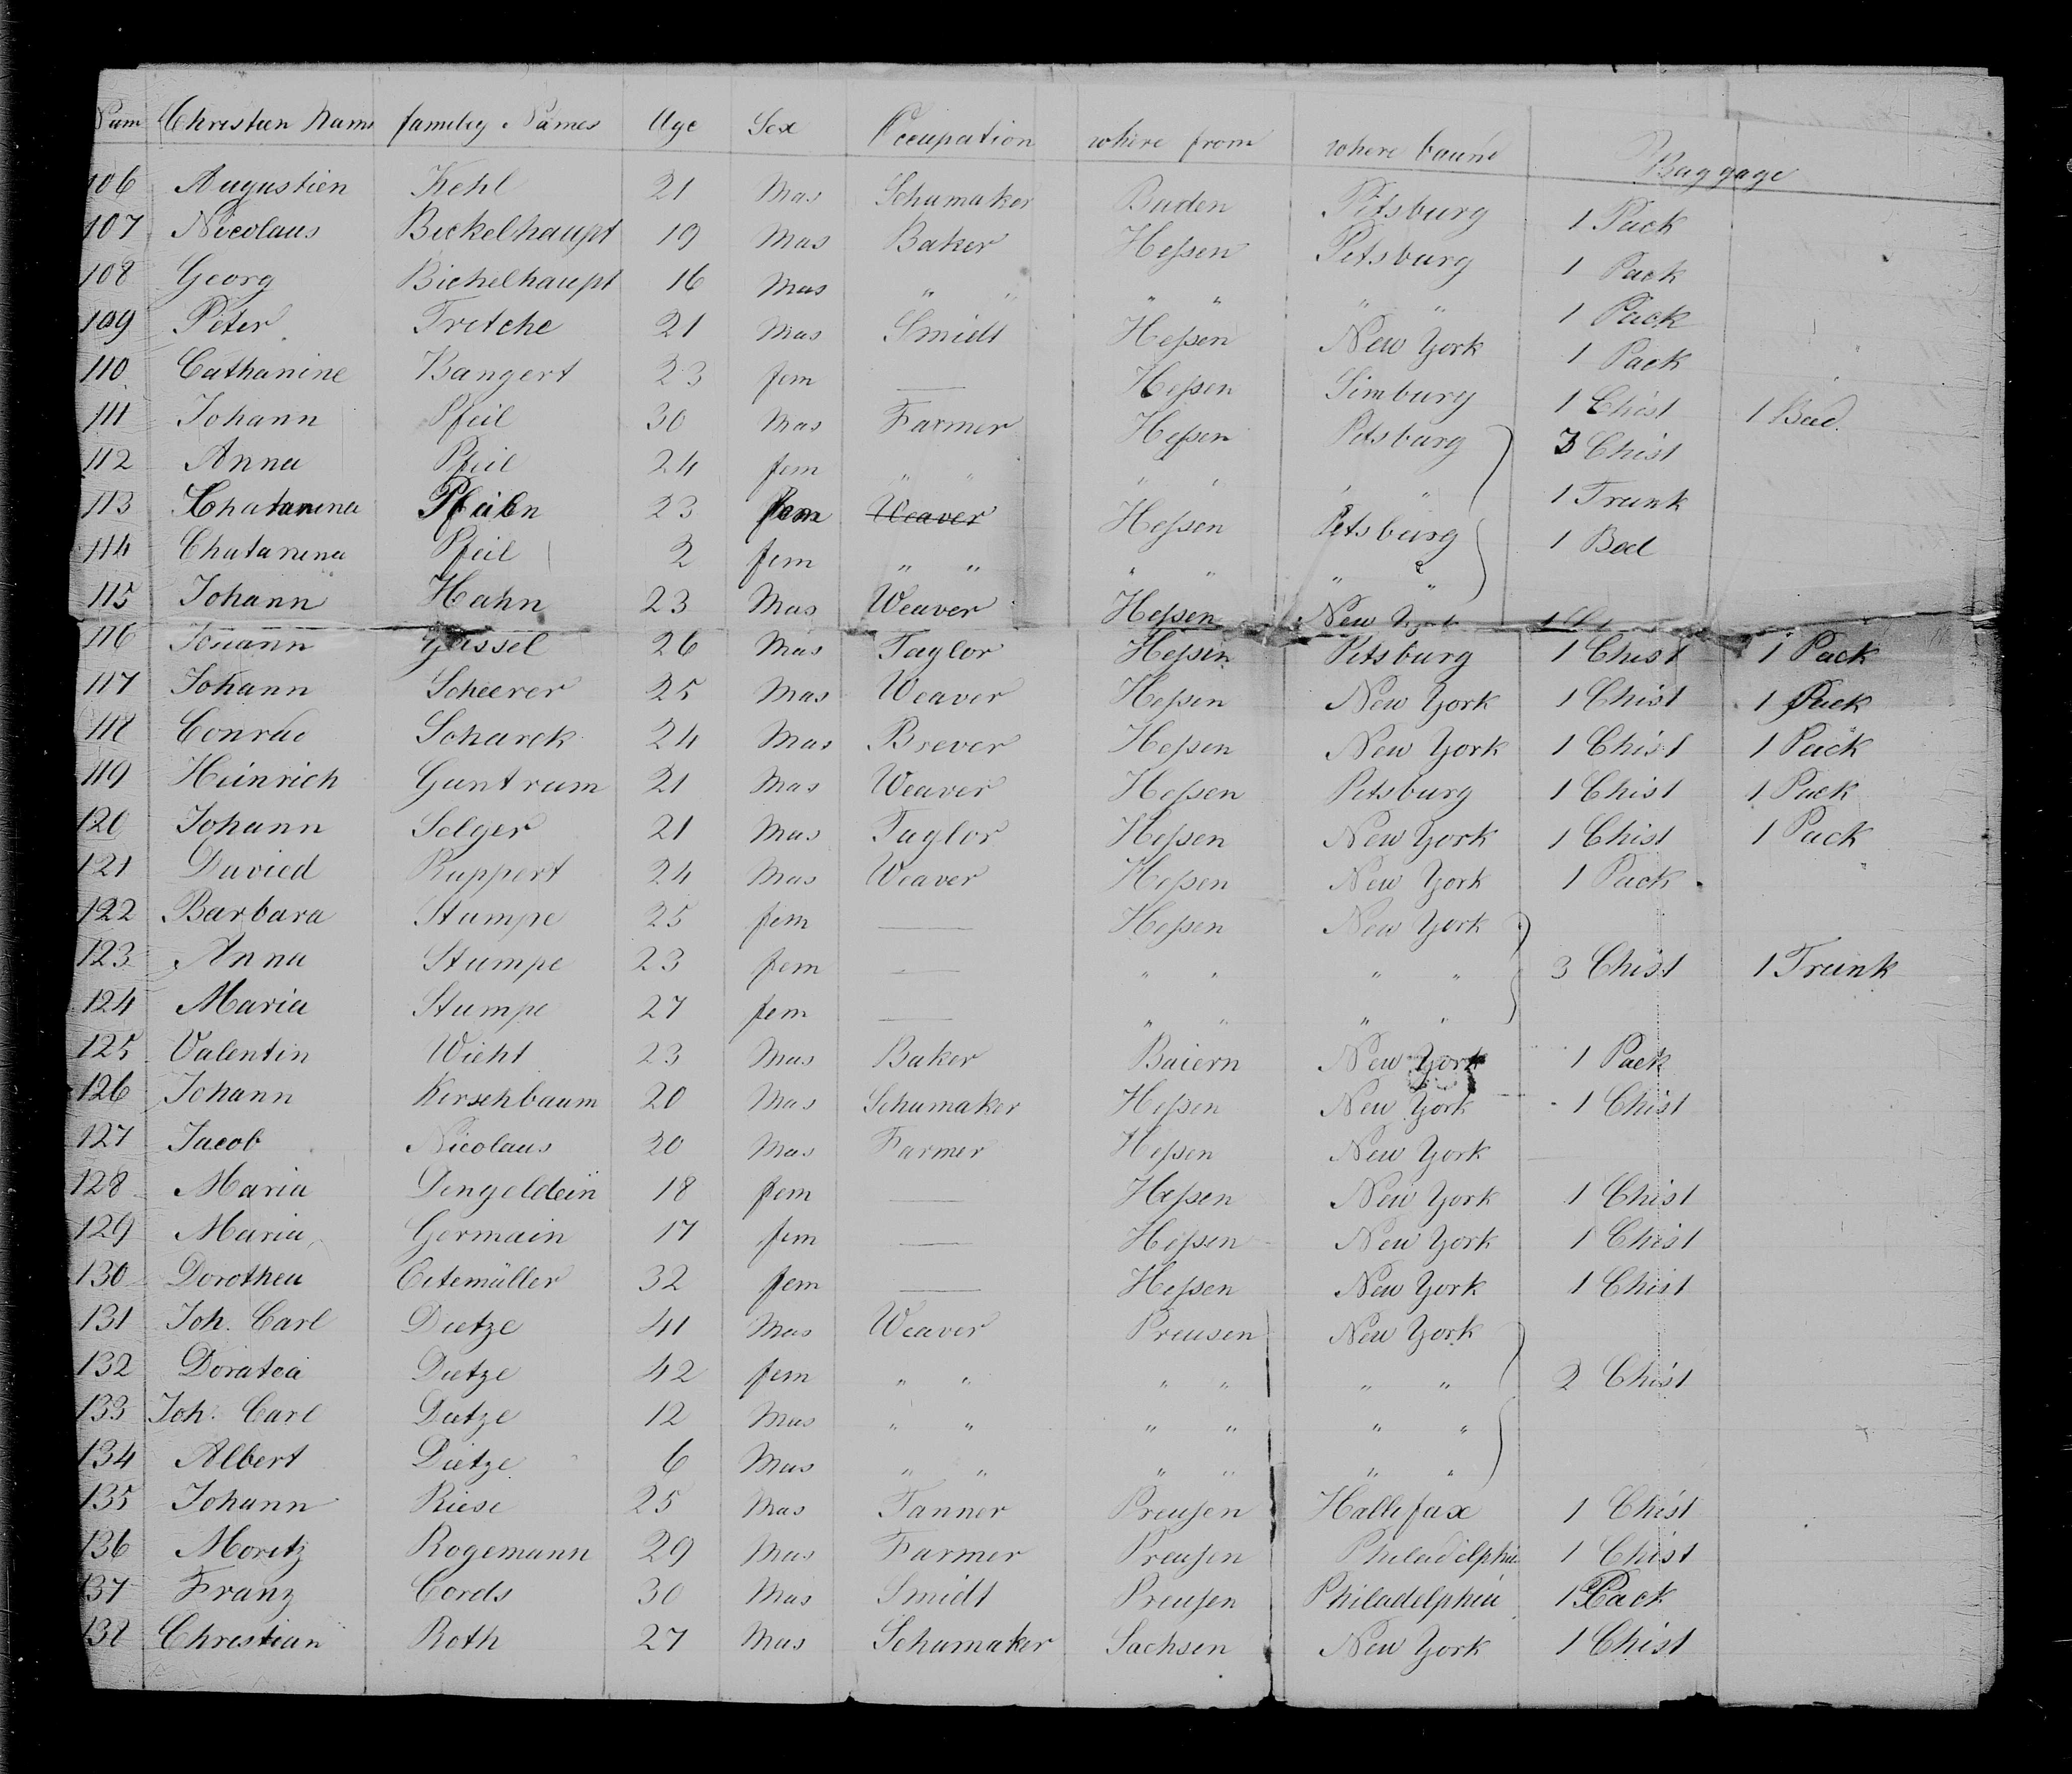 Num Christien Name familey Names Age Sex Occupation where from where baund Baggage
106 Augustien Kehl 21 Mas Schumaker Baden Pitsburg 1 Pack
107 Nicolaus Bickelhaupt 19 Mas Baker Heßen Pitsburg 1 Pack
108 Georg Bichelhaupt 16 Mas " " " " " " 1 Pack
109 Peter Fretche 21 Mas Smidt Heßen New York 1 Pack
110 Cathanine Bangert 23 fem — Heßen Limburg 1 Chist 1 Bed
111 Johann Pfeil 30 Mas Farmer Heßen Pitsburg 3 Chist
112 Anna Pfeil 24 fem " " " " " " 1 Trunk
113 Chatanina Pfeiln 23 fem Weaver Heßen Pitsburg 1 Bed
114 Chatanina Pfeil 2 fem " " " " " "
115 Johann Hahn 23 Mas Weaver Heßen New York
116 Johann Gassel 26 Mas Taylor Heßen Pitsburg 1 Chist 1 Pack
117 Johann Scheerer 25 Mas Weaver Heßen New York 1 Chist 1 Pack
118 Conrad Scharck 24 Mas Brever Heßen New York 1 Chist 1 Pack
119 Heinrich Guntrum 21 Mas Weaver Heßen Pitsburg 1 Chist 1 Pack
120 Johann Selger 21 Mas Taylor Heßen New York 1 Chist 1 Pack
121 Davied Ruppert 24 Mas Weaver Heßen New York 1 Pack
122 Barbara Stumpe 25 fem — Heßen New York
123 Anna Stumpe 23 fem — " " " " 3 Chist 1 Trunk
124 Maria Stumpe 27 fem — " " " "
125 Valentin Wicht 23 Mas Baker Baiern New York 1 Pack
126 Johann Kerschbaum 20 Mas Schumaker Heßen New York 1 Chist
127 Jacob Nicolaus 20 Mas Farmer Heßen New York
128 Maria Dengeldein 18 fem — Heßen New York 1 Chist
129 Maria Germain 17 fem — Heßen New York 1 Chist
130 Dorothea Eitemüller 32 fem — Heßen New York 1 Chist
131 Joh. Carl Dietze 41 Mas Weaver Preusen New York
132 Doratea Dietze 42 fem " " " " " " 2 Chist
133 Joh. Carl Dietze 12 Mas " " " " " "
134 Albert Dietze 6 Mas " " " " " "
135 Johann Riese 25 Mas Tanner Preußen Hallefax 1 Chist
136 Moritz Rogemann 29 Mas Farmer Preußen Philadelphia 1 Chist
137 Franz Cords 30 Mas Smidt Preußen Philadelphia 1 Pack
138 Christian Roth 27 Mas Schumaker Sachsen New York 1 Chist